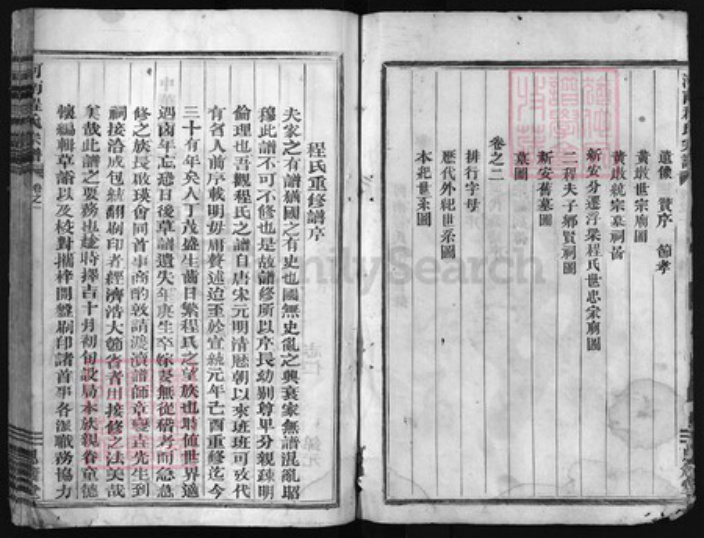 遺像 贊序 節孝
黃墩世宗廟圖
黃墩統宗墓祠畨
新安分遷浮梁程氏世忠宗廟圖
二程夫子鄉賢祠圖
新安舊墓圖
墓圖
卷之二
排行字母
歷代外紀世系圖
本紀世系圖
程氏重修譜序
夫家之有譜猶國之有史也國無史亂之興衰家無譜混亂昭
穆此譜不可不修也是故譜修所以序長幼別尊卑分親疎明
倫理也吾觀程氏之譜自唐宋元明清歷朝以來班班可攷代
有名人前序載明毋庸贅述迨至於宣統元年亡酉重修迄今
三十有年矣人丁茂盛生齒日繁程氏之望族也時值世界適
遇荒年忘恐日後草譜遺失年庚生卒嫁娶無從稽考而急急
修之族長啟瑛會同首事商酌敦請渡濱譜師章變吉先生到
祠接洽成包統翻刷印者經濟浩大節省者用接修之法美哉
矣哉此譜之要務也趁時擇吉十月初旬設局本族親眷童德
懷編輯草譜以及校對攜梓開盤刷印諸首事各派職務協力
河南程氏宗譜
卷之一
FamilySearch